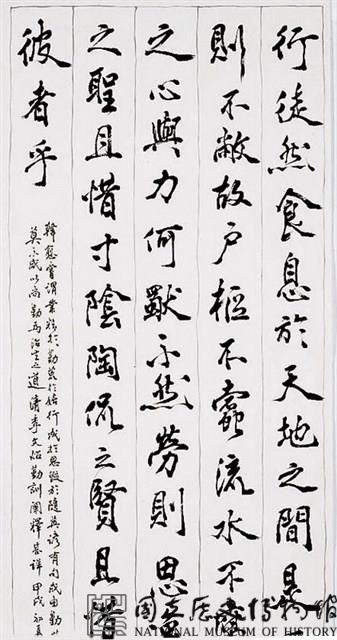 行徒然食息於天地之間是
則不敝故戶樞不蠹流水不腐
之心與力何獨不然勞則思
之聖且惜寸陰陶侃之賢且惜
彼者乎
韓愈嘗謂業精於勤荒於嬉行成於思毀於隨英諺有句成由勤
莫不咸以尚勤為治生之道清李文炤勤訓闡釋甚詳甲戌初夏
國立歷史博物館
NATIONAL MUSEUM OF HISTORY